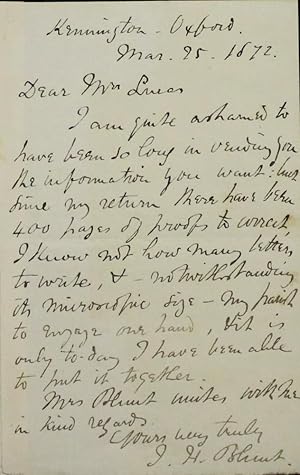 Kennington - Oxford.
Mar. 25. 1872.
Dear Mrs Lucas
I am quite ashamed to
have been so long in sending you
the information you want: but
since my return there have been
400 pages of proofs to correct,
I know not how many letters
to write, & - notwithstanding
its microscopic size - my parish
to engage one hand, & it is
only to-day I have been able
to put it together.
Mrs Blunt unites with me
in kind regards.
Yours very truly
J. H. Blunt.